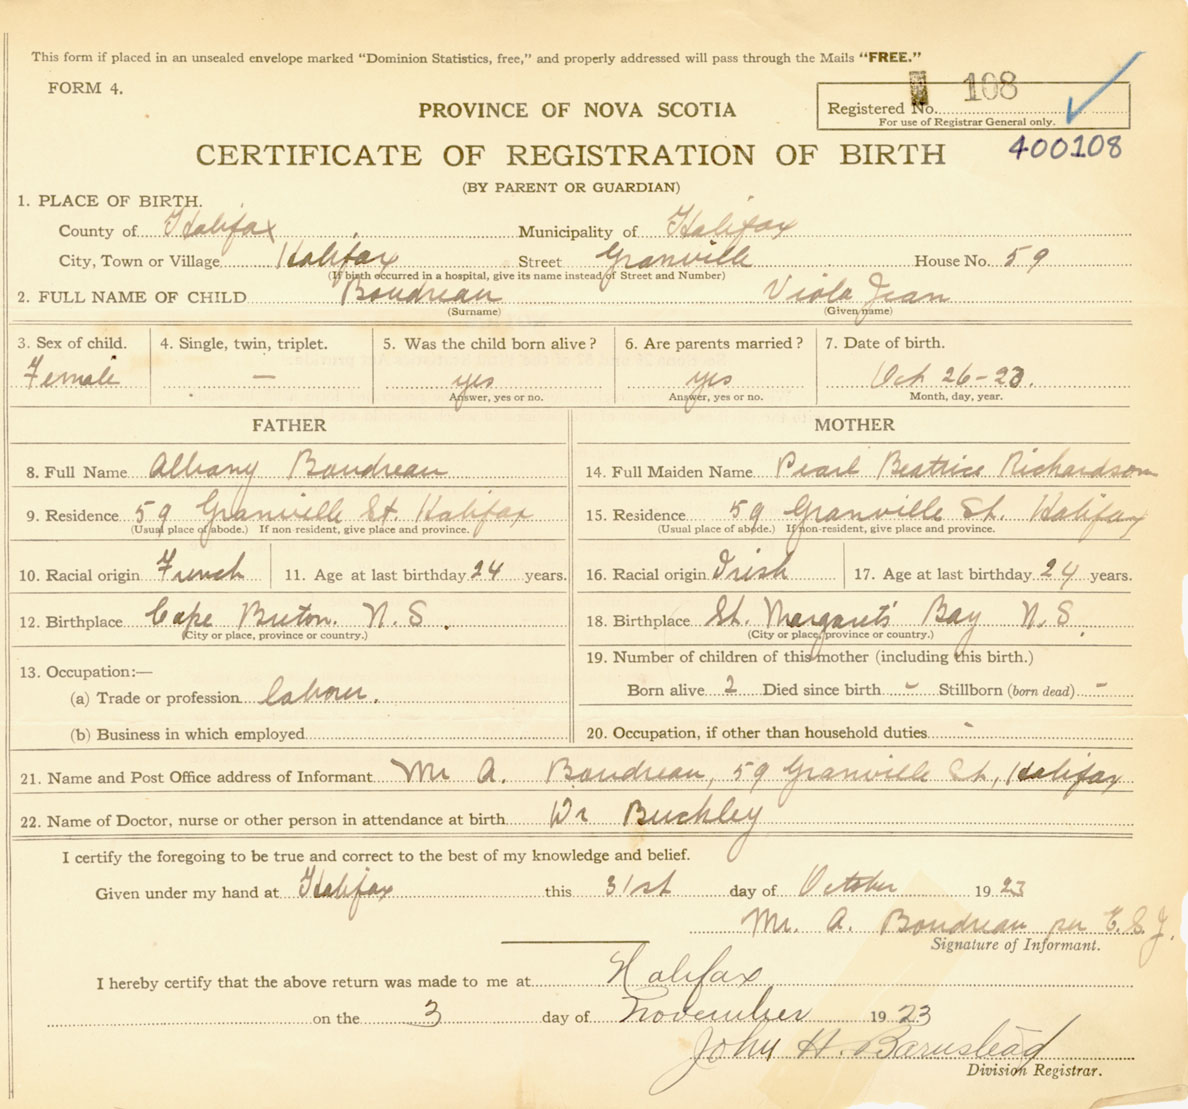 This form if placed in an unsealed envelope marked "Dominion Statistics, free," and properly addressed will pass through the Mails "FREE."
FORM 4.
108
PROVINCE OF NOVA SCOTIA
Registered No.
For use of Registrar General only.
CERTIFICATE OF REGISTRATION OF BIRTH
400108
(BY PARENT OR GUARDIAN)
1. PLACE OF BIRTH.
County of Halifax Municipality of Halifax
City, Town or Village Halifax Street Granville House No. 59
(If birth occurred in a hospital, give its name instead of Street and Number)
2. FULL NAME OF CHILD Boudreau Viola Jean
(Surname) (Given name)
3. Sex of child. 4. Single, twin, triplet. 5. Was the child born alive? 6. Are parents married? 7. Date of birth.
Female — yes yes Oct 26-23.
Answer, yes or no. Answer, yes or no. Month, day, year.
FATHER MOTHER
8. Full Name Albany Boudreau 14. Full Maiden Name Pearl Beatrice Richardson
9. Residence 59 Granville St. Halifax 15. Residence 59 Granville St. Halifax
(Usual place of abode.) If non resident, give place and province. (Usual place of abode.) If non-resident, give place and province.
10. Racial origin French 11. Age at last birthday 24 years. 16. Racial origin Irish 17. Age at last birthday 24 years.
12. Birthplace Cape Breton. N.S. 18. Birthplace St. Margaret's Bay N.S.
(City or place, province or country.) (City or place, province or country.)
13. Occupation:— 19. Number of children of this mother (including this birth.)
(a) Trade or profession labour. Born alive 2 Died since birth - Stillborn (born dead) -
(b) Business in which employed 20. Occupation, if other than household duties -
21. Name and Post Office address of Informant Mr A. Boudreau, 59 Granville St, Halifax
22. Name of Doctor, nurse or other person in attendance at birth Dr Buckley
I certify the foregoing to be true and correct to the best of my knowledge and belief.
Given under my hand at Halifax this 31st day of October 1923
Mr. A. Boudreau per E.S.J.
Signature of Informant.
I hereby certify that the above return was made to me at Halifax
on the 3 day of November 1923
John H. Barnstead
Division Registrar.